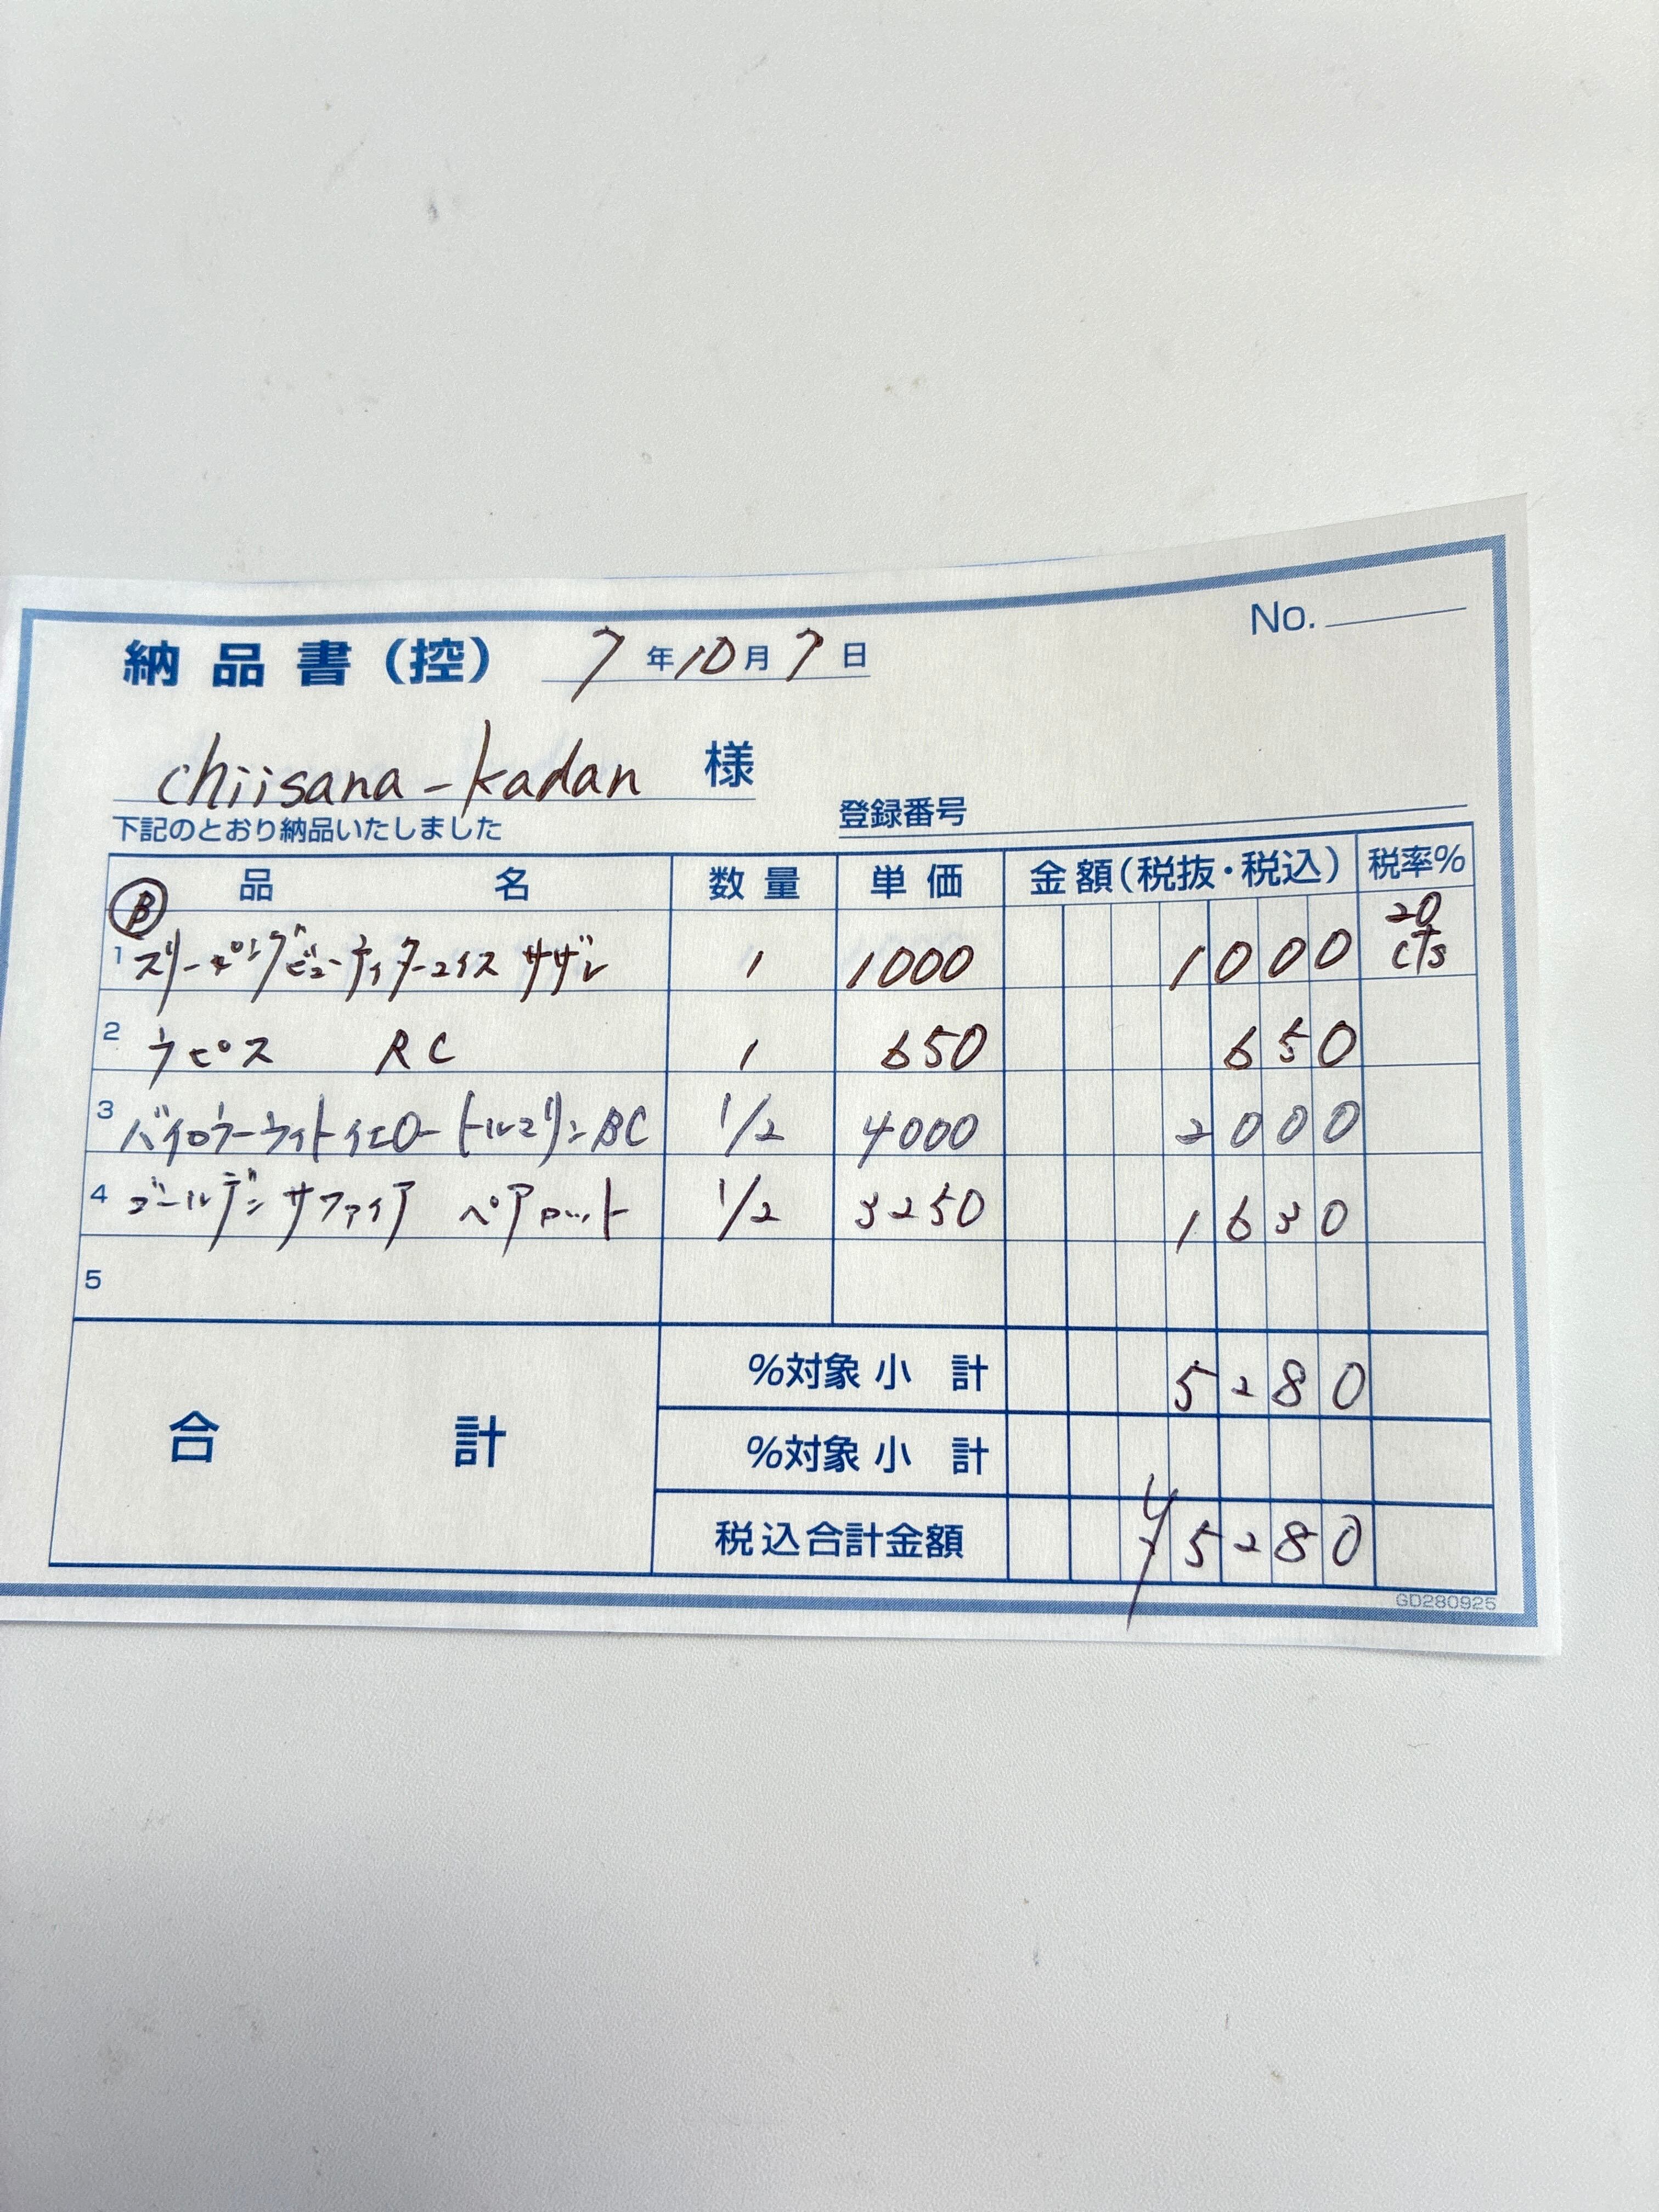 No.
納品書(控) 7年10月7日
chiisana-kadan 様
下記のとおり納品いたしました 登録番号
品名 数量 単価 金額(税抜・税込) 税率%
Ⓑ
1 スリーピングビューティターコイス サザレ 1 1000 1000 20 cts
2 ラピス RC 1 650 650
3 バイカラーライトイエロートルマリン BC 1/2 4000 2000
4 ゴールデンサファイア ペアロット 1/2 3250 1630
5
合計
%対象 小計 5280
%対象 小計
税込合計金額 ¥5280
GD280925